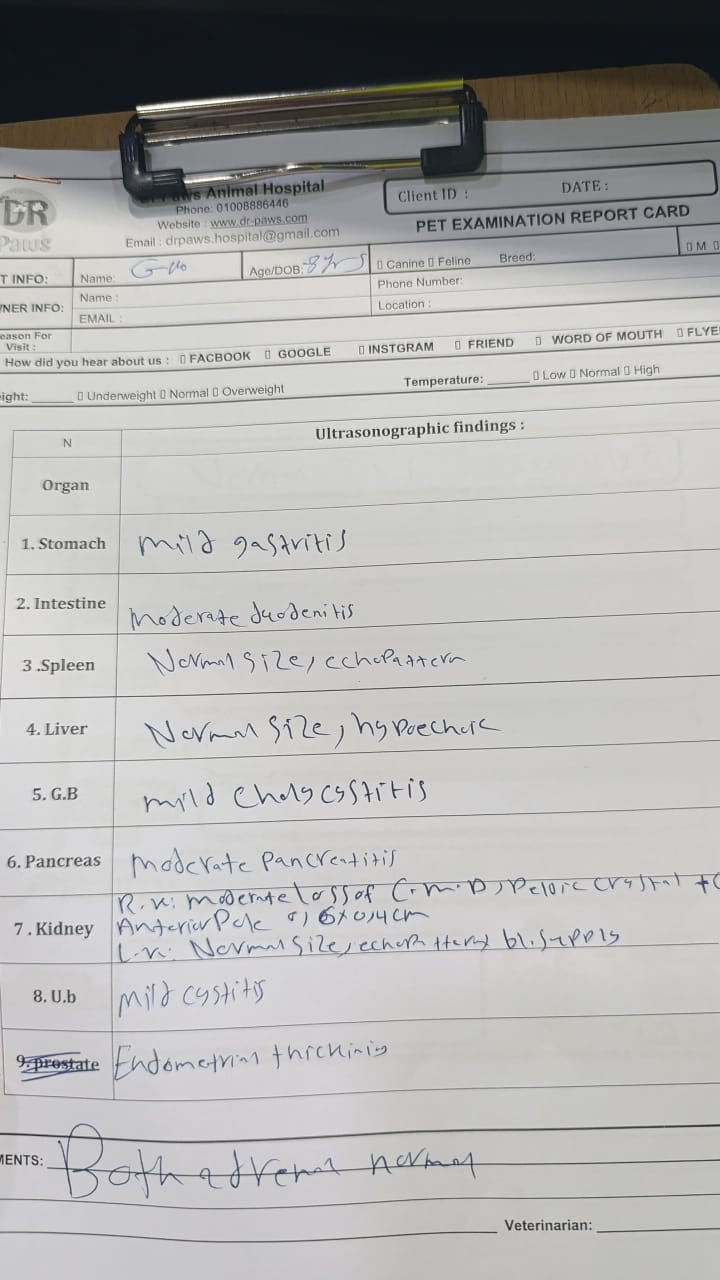 DR
Paws
Paws Animal Hospital
Phone: 01008886446
Website : www.dr-paws.com
Email : drpaws.hospital@gmail.com
Client ID : DATE :
PET EXAMINATION REPORT CARD
T INFO: Name: Age/DOB: 8 yrs Canine Feline Breed: M
NER INFO: Name : Phone Number:
EMAIL : Location :
eason For
Visit :
How did you hear about us : FACBOOK GOOGLE INSTGRAM FRIEND WORD OF MOUTH FLYE
eight: Underweight Normal Overweight Temperature: Low Normal High
N Ultrasonographic findings :
Organ
1. Stomach mild gastritis
2. Intestine moderate duodenitis
3 .Spleen Normal size, echopattern
4. Liver Normal size, hypoechoic
5. G.B mild cholycystitis
6. Pancreas moderate pancreatitis
7 . Kidney R.K: moderate loss of C.M.D, Pelvic
Anterior Pole 0,6x0,4cm
L.K: Normal size, bl. supply
8. U.b mild cystitis
9. prostate Endometrial
MENTS: Both adrenal normal
Veterinarian: